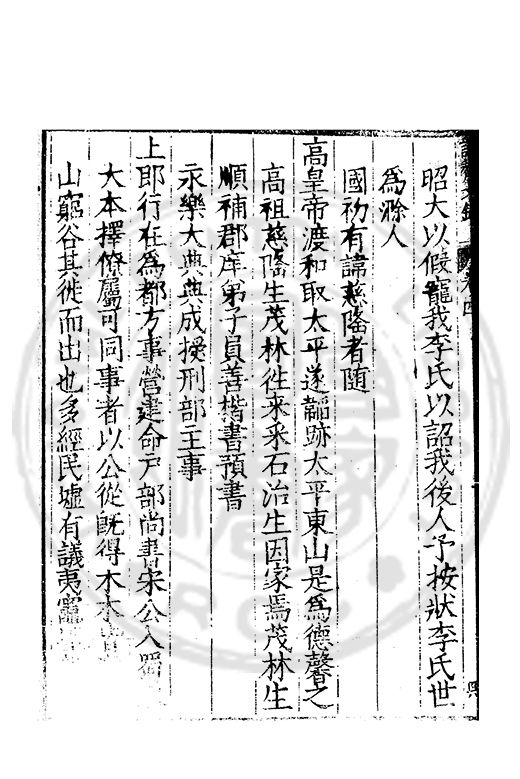 昭大以假寵我李氏以詔我後人予按狀李氏世
為滁人
國初有諱慈隆者隨
高皇帝渡和取太平遂韜跡太平東山是為德馨之
高祖慈隆生茂林徃来采石治生因家焉茂林生
順補郡庠弟子員善楷書預書
永樂大典典成授刑部主事
上即行在為都方事營建命戶部尚書宋公入蜀
大本擇僚屬可同事者以公從既得木本
山窮谷其徙而出也多經民墟有議夷竈